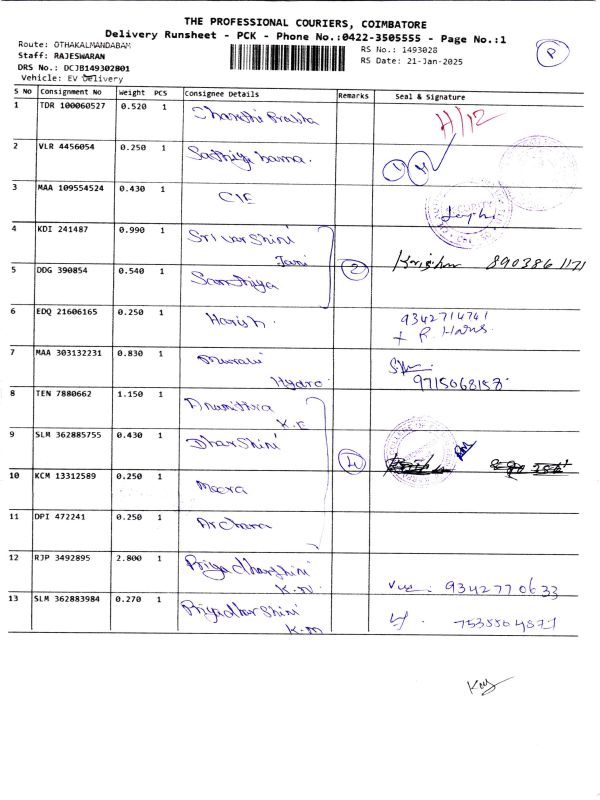 THE PROFESSIONAL COURIERS, COIMBATORE
Delivery Runsheet - PCK - Phone No.:0422-3505555 - Page No.:1
Route: OTHAKALMANDABAM
RS No.: 1493028
Staff: RAJESWARAN
RS Date: 21-Jan-2025
DRS No.: DCJB149302801
Vehicle: EV Delivery
P
S No Consignment No Weight PCS Consignee Details Remarks Seal & Signature
1 TDR 100060527 0.520 1 Prabha
H/12
2 VLR 4456054 0.250 1
3 MAA 109554524 0.430 1 CIE
4 KDI 241487 0.990 1 Srivarshini
Jani
2
8903861171
5 DDG 390854 0.540 1 Sandhiya
6 EDQ 21606165 0.250 1 Harish.
9342714741
7 MAA 303132231 0.830 1 Murali
Hydro
9715068158
8 TEN 7880662 1.150 1
K.E
9 SLM 362885755 0.430 1 Dharshini
4
10 KCM 13312589 0.250 1 Meera
11 DPI 472241 0.250 1 Archana
12 RJP 3492895 2.800 1 Priyadharshini
K.N
9342770633
13 SLM 362883984 0.270 1 Priyadharshini
K.M
7535504871